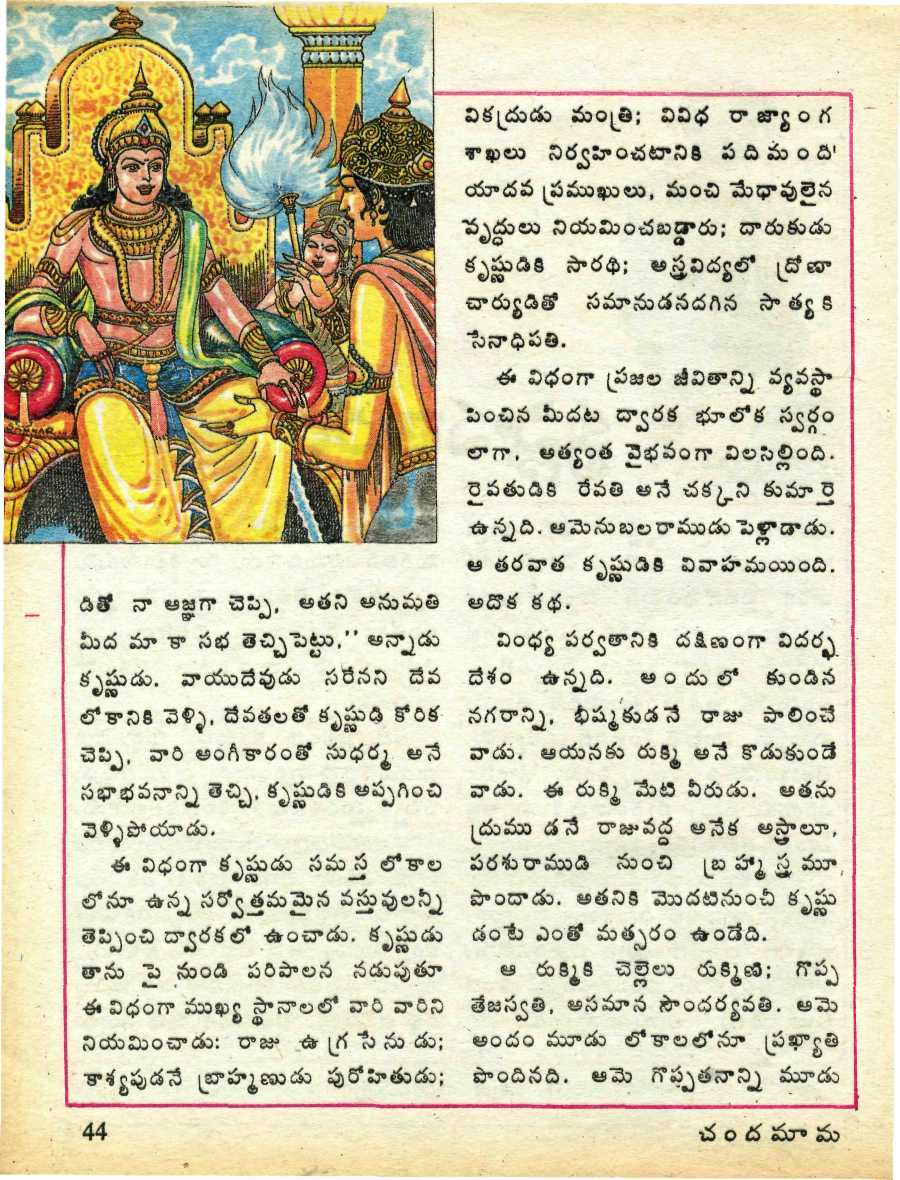 డితో నా ఆజ్ఞగా చెప్పి, అతని అనుమతి
మీద మా కా సభ తెచ్చిపెట్టు,'' అన్నాడు
కృష్ణుడు. వాయుదేవుడు సరేనని దేవ
లోకానికి వెళ్ళి, దేవతలతో కృష్ణుడి కోరిక
చెప్పి, వారి అంగీకారంతో సుధర్మ అనే
సభాభవనాన్ని తెచ్చి, కృష్ణుడికి అప్పగించి
వెళ్ళిపోయాడు.
ఈ విధంగా కృష్ణుడు సమస్త లోకాల
లోనూ ఉన్న సర్వోత్తమమైన వస్తువులన్నీ
తెప్పించి ద్వారకలో ఉంచాడు. కృష్ణుడు
తాను పై నుండి పరిపాలన నడుపుతూ
ఈ విధంగా ముఖ్య స్థానాలలో వారి వారిని
నియమించాడు: రాజు ఉగ్రసేనుడు;
కాశ్యపుడనే బ్రాహ్మణుడు పురోహితుడు;
వికద్రుడు మంత్రి; వివిధ రాజ్యాంగ
శాఖలు నిర్వహించటానికి పదిమంది
యాదవ ప్రముఖులు, మంచి మేధావులైన
వృద్ధులు నియమించబడ్డారు; దారుకుడు
కృష్ణుడికి సారథి; అస్త్రవిద్యలో ద్రోణా
చార్యుడితో సమానుడనదగిన సాత్యకి
సేనాధిపతి.
ఈ విధంగా ప్రజల జీవితాన్ని వ్యవస్థా
పించిన మీదట ద్వారక భూలోక స్వర్గం
లాగా, అత్యంత వైభవంగా విలసిల్లింది.
రైవతుడికి రేవతి అనే చక్కని కుమార్తె
ఉన్నది. ఆమెను బలరాముడు పెళ్లాడాడు.
ఆ తరవాత కృష్ణుడికి వివాహమయింది.
అదొక కథ.
వింధ్య పర్వతానికి దక్షిణంగా విదర్భ
దేశం ఉన్నది. అందులో కుండిన
నగరాన్ని, భీష్మకుడనే రాజు పాలించే
వాడు. ఆయనకు రుక్మి అనే కొడుకుండే
వాడు. ఈ రుక్మి మేటి వీరుడు. అతను
ద్రుముడనే రాజువద్ద అనేక అస్త్రాలూ,
పరశురాముడి నుంచి బ్రహ్మాస్త్రమూ
పొందాడు. అతనికి మొదటినుంచీ కృష్ణు
డంటే ఎంతో మత్సరం ఉండేది.
ఆ రుక్మికి చెల్లెలు రుక్మిణి; గొప్ప
తేజస్వతి, అసమాన సౌందర్యవతి. ఆమె
అందం మూడు లోకాలలోనూ ప్రఖ్యాతి
పొందినది. ఆమె గొప్పతనాన్ని మూడు
44
చందమామ